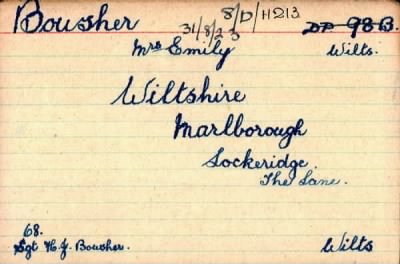 Bowsher 31/8/23 8/D/11213 DP 98B.
Mrs Emily Wilts.
Wiltshire
Marlborough
Lockeridge.
The Lane.
68.
Sgt H.J. Bowsher. Wilts